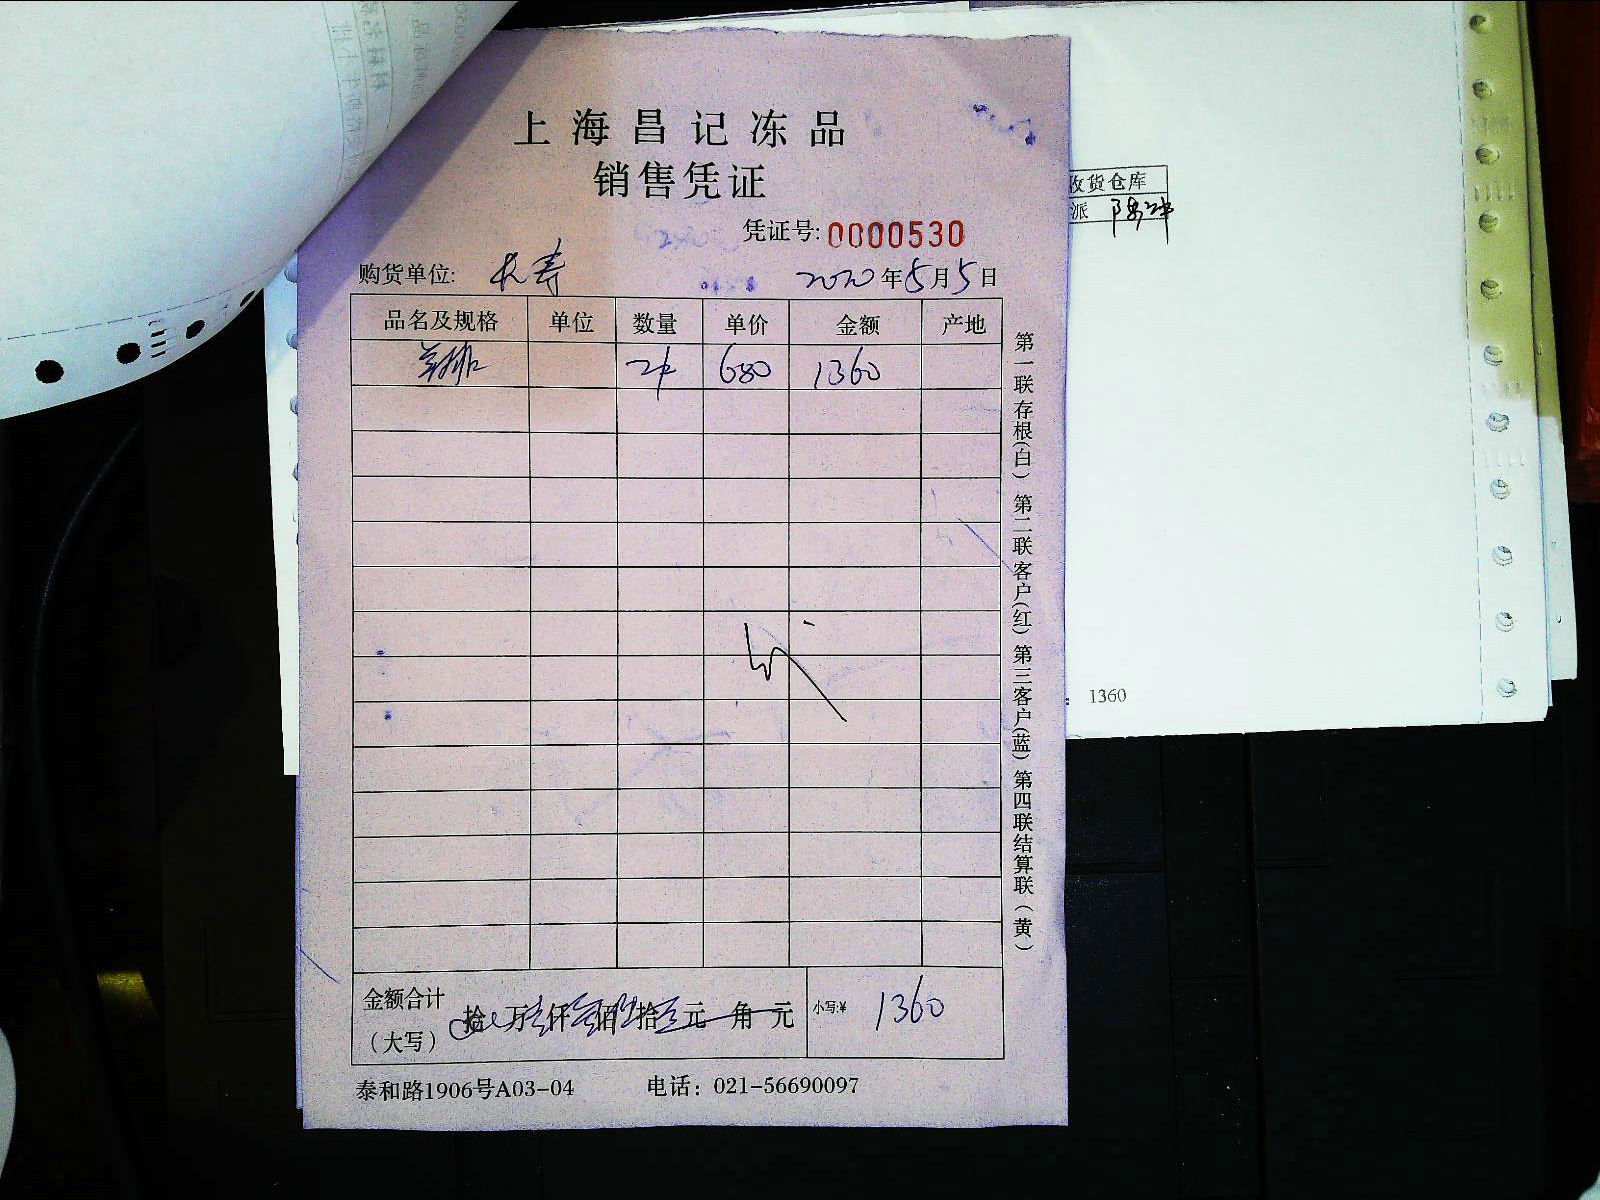 上海昌记冻品
销售凭证
凭证号: 0000530
购货单位: 长寿 2020年5月5日
品名及规格 单位 数量 单价 金额 产地
羊排 2件 680 1360
第一联存根(白) 第二联客户(红) 第三客户(蓝) 第四联结算联(黄)
金额合计
(大写)
拾 万 仟 佰 拾 元 角 元
小写:¥ 1360
泰和路1906号A03-04 电话: 021-56690097
收货仓库
派
1360